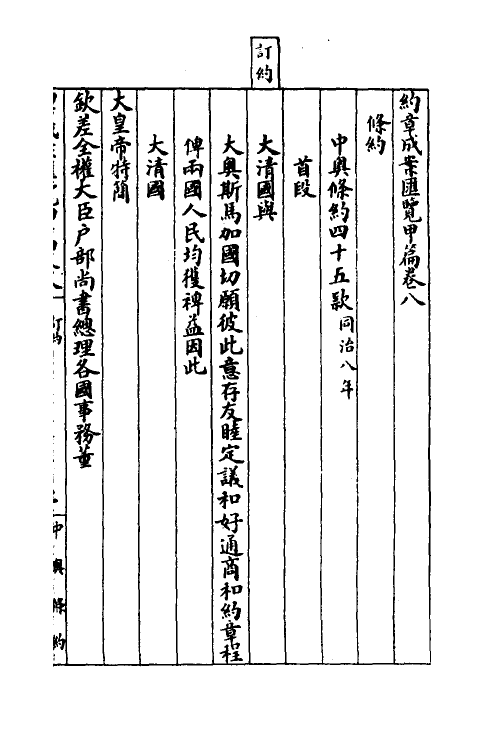 訂約
約章成案匯覽甲篇卷八
條約
中奧條約四十五款同治八年
首段
大清國與
大奧斯馬加國切願彼此意存友睦定議和好通商和約章程
俾兩國人民均獲裨益因此
大清國
大皇帝特簡
欽差全權大臣户部尚書總理各國事務董
訂約
中奧條約